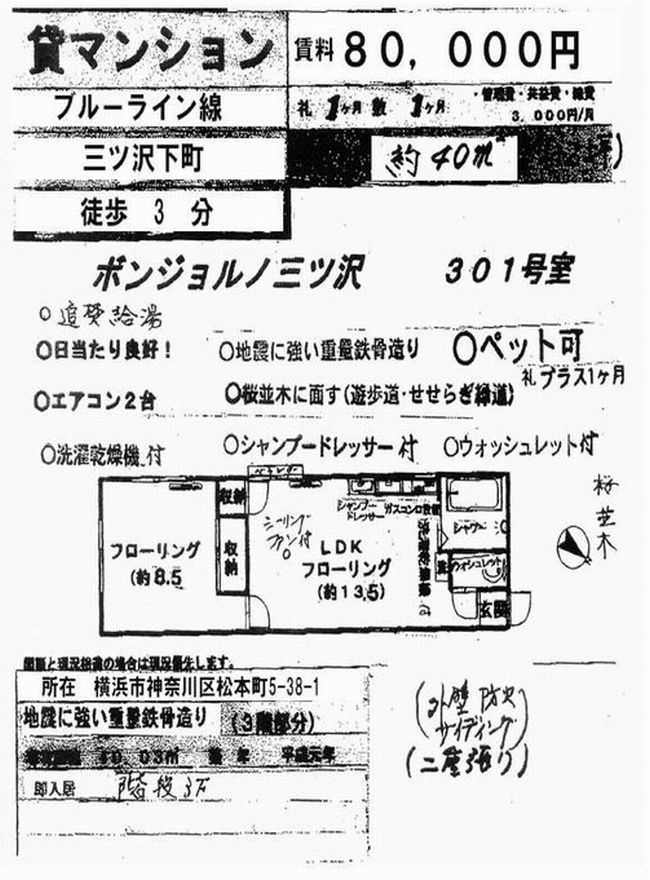 貸マンション
賃料 80,000円
ブルーライン線
礼 1ヶ月 敷 1ヶ月
・管理費・共益費・雑費
3,000円/月
三ツ沢下町
約40㎡
徒歩 3 分
ボンジョルノ三ツ沢 301号室
○追焚給湯
○日当たり良好!
○地震に強い重量鉄骨造り
○ペット可
礼プラス1ヶ月
○エアコン2台
○桜並木に面す(遊歩道・せせらぎ緑道)
○洗濯乾燥機付
○シャンプードレッサー付
○ウォッシュレット付
ベランダ
収納
収納
シーリング
ファン付
シャンプー
ドレッサー
ガスコンロ設置
シャワー
フローリング
(約8.5
LDK
フローリング
(約13.5)
ウォシュレット
玄関
桜並木
図面と現況相違の場合は現況優先します。
所在 横浜市神奈川区松本町5-38-1
地震に強い重量鉄骨造り (3階部分)
40.03㎡ 築年 平成元年
即入居
(外壁防火
サイディング
(二重張り)